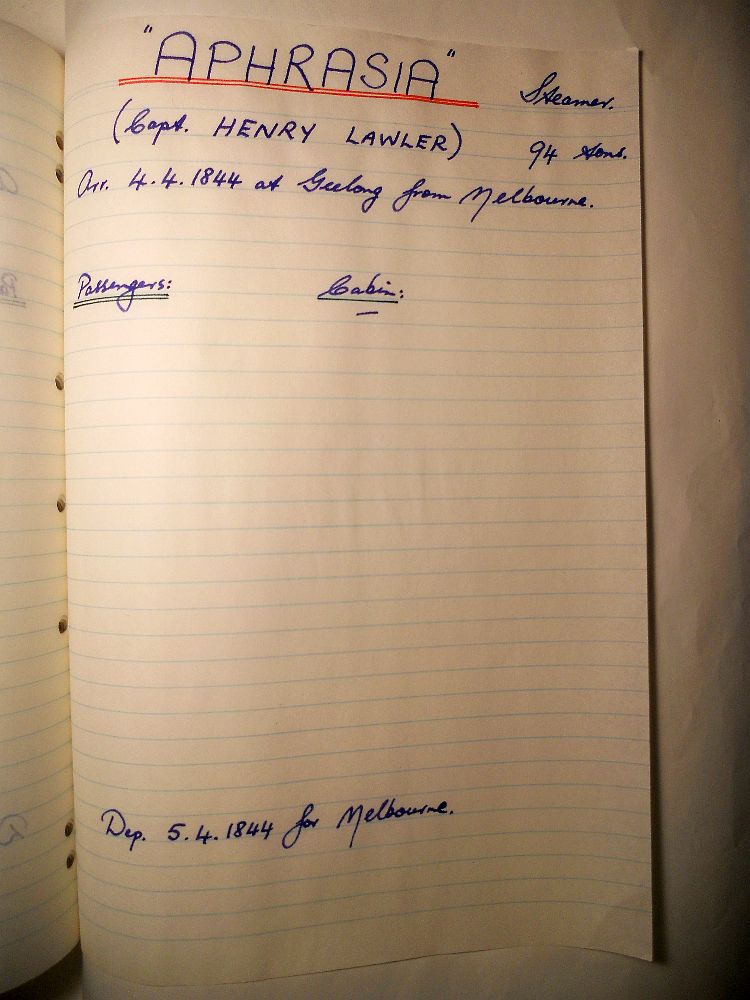 "APHRASIA" Steamer.
(Capt. HENRY LAWLER) 94 tons.
Arr. 4.4.1844 at Geelong from Melbourne.
Passengers: Cabin:
Dep. 5.4.1844 for Melbourne.